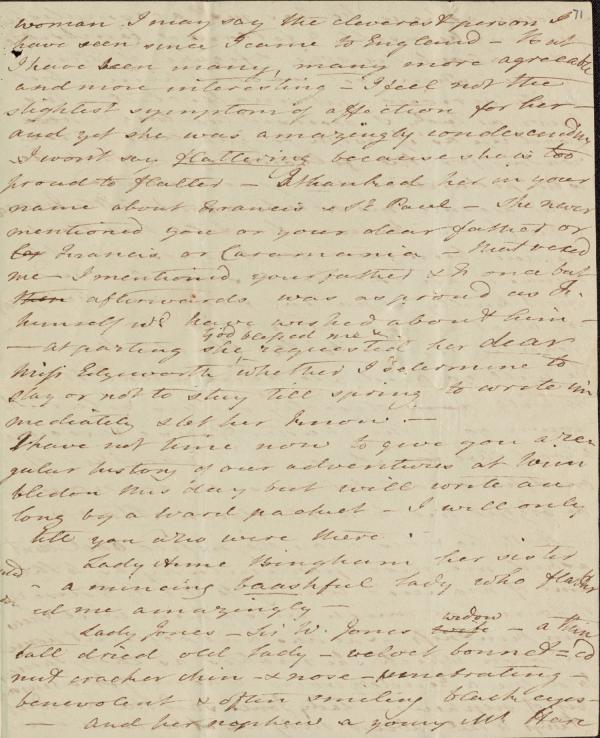 71
woman I may say the cleverest person I
have seen since I came to England - But
I have been many, many more agreeable
and more interesting - I feel not the
slightest symptom of affection for her -
and yet she was amazingly condescending
I won't say flattering because she is too
proud to flatter - I thanked her in your
name about Francis & St Paul - She never
mentioned you or your dear father or
Francis or Caramania - that vexed
me - I mentioned your father & Fr once but
then afterwards was as proud as Fr.
himself wd have wished about him -
- at parting she God blessed me & requested her dear
Miss Edgeworth whether I determine to
stay or not to stay till spring to write im
mediately & let her know. -
I have not time now to give you a re
gular history of our adventures at Wim
bledon this day but will write au
long by a Ward packet - I will only
tell you who were there.
Lady Anne Bingham her sister
- a mincing baashful lady who flatter
ed me amazingly -
Lady Jones - Sir W. Jones wife widow - a thin
tall dried old lady - velvet bonnet = ed
nut cracker chin - & nose - penetrating -
benevolent & often smiling black eyes -
- and her nephew a young Mr Hare